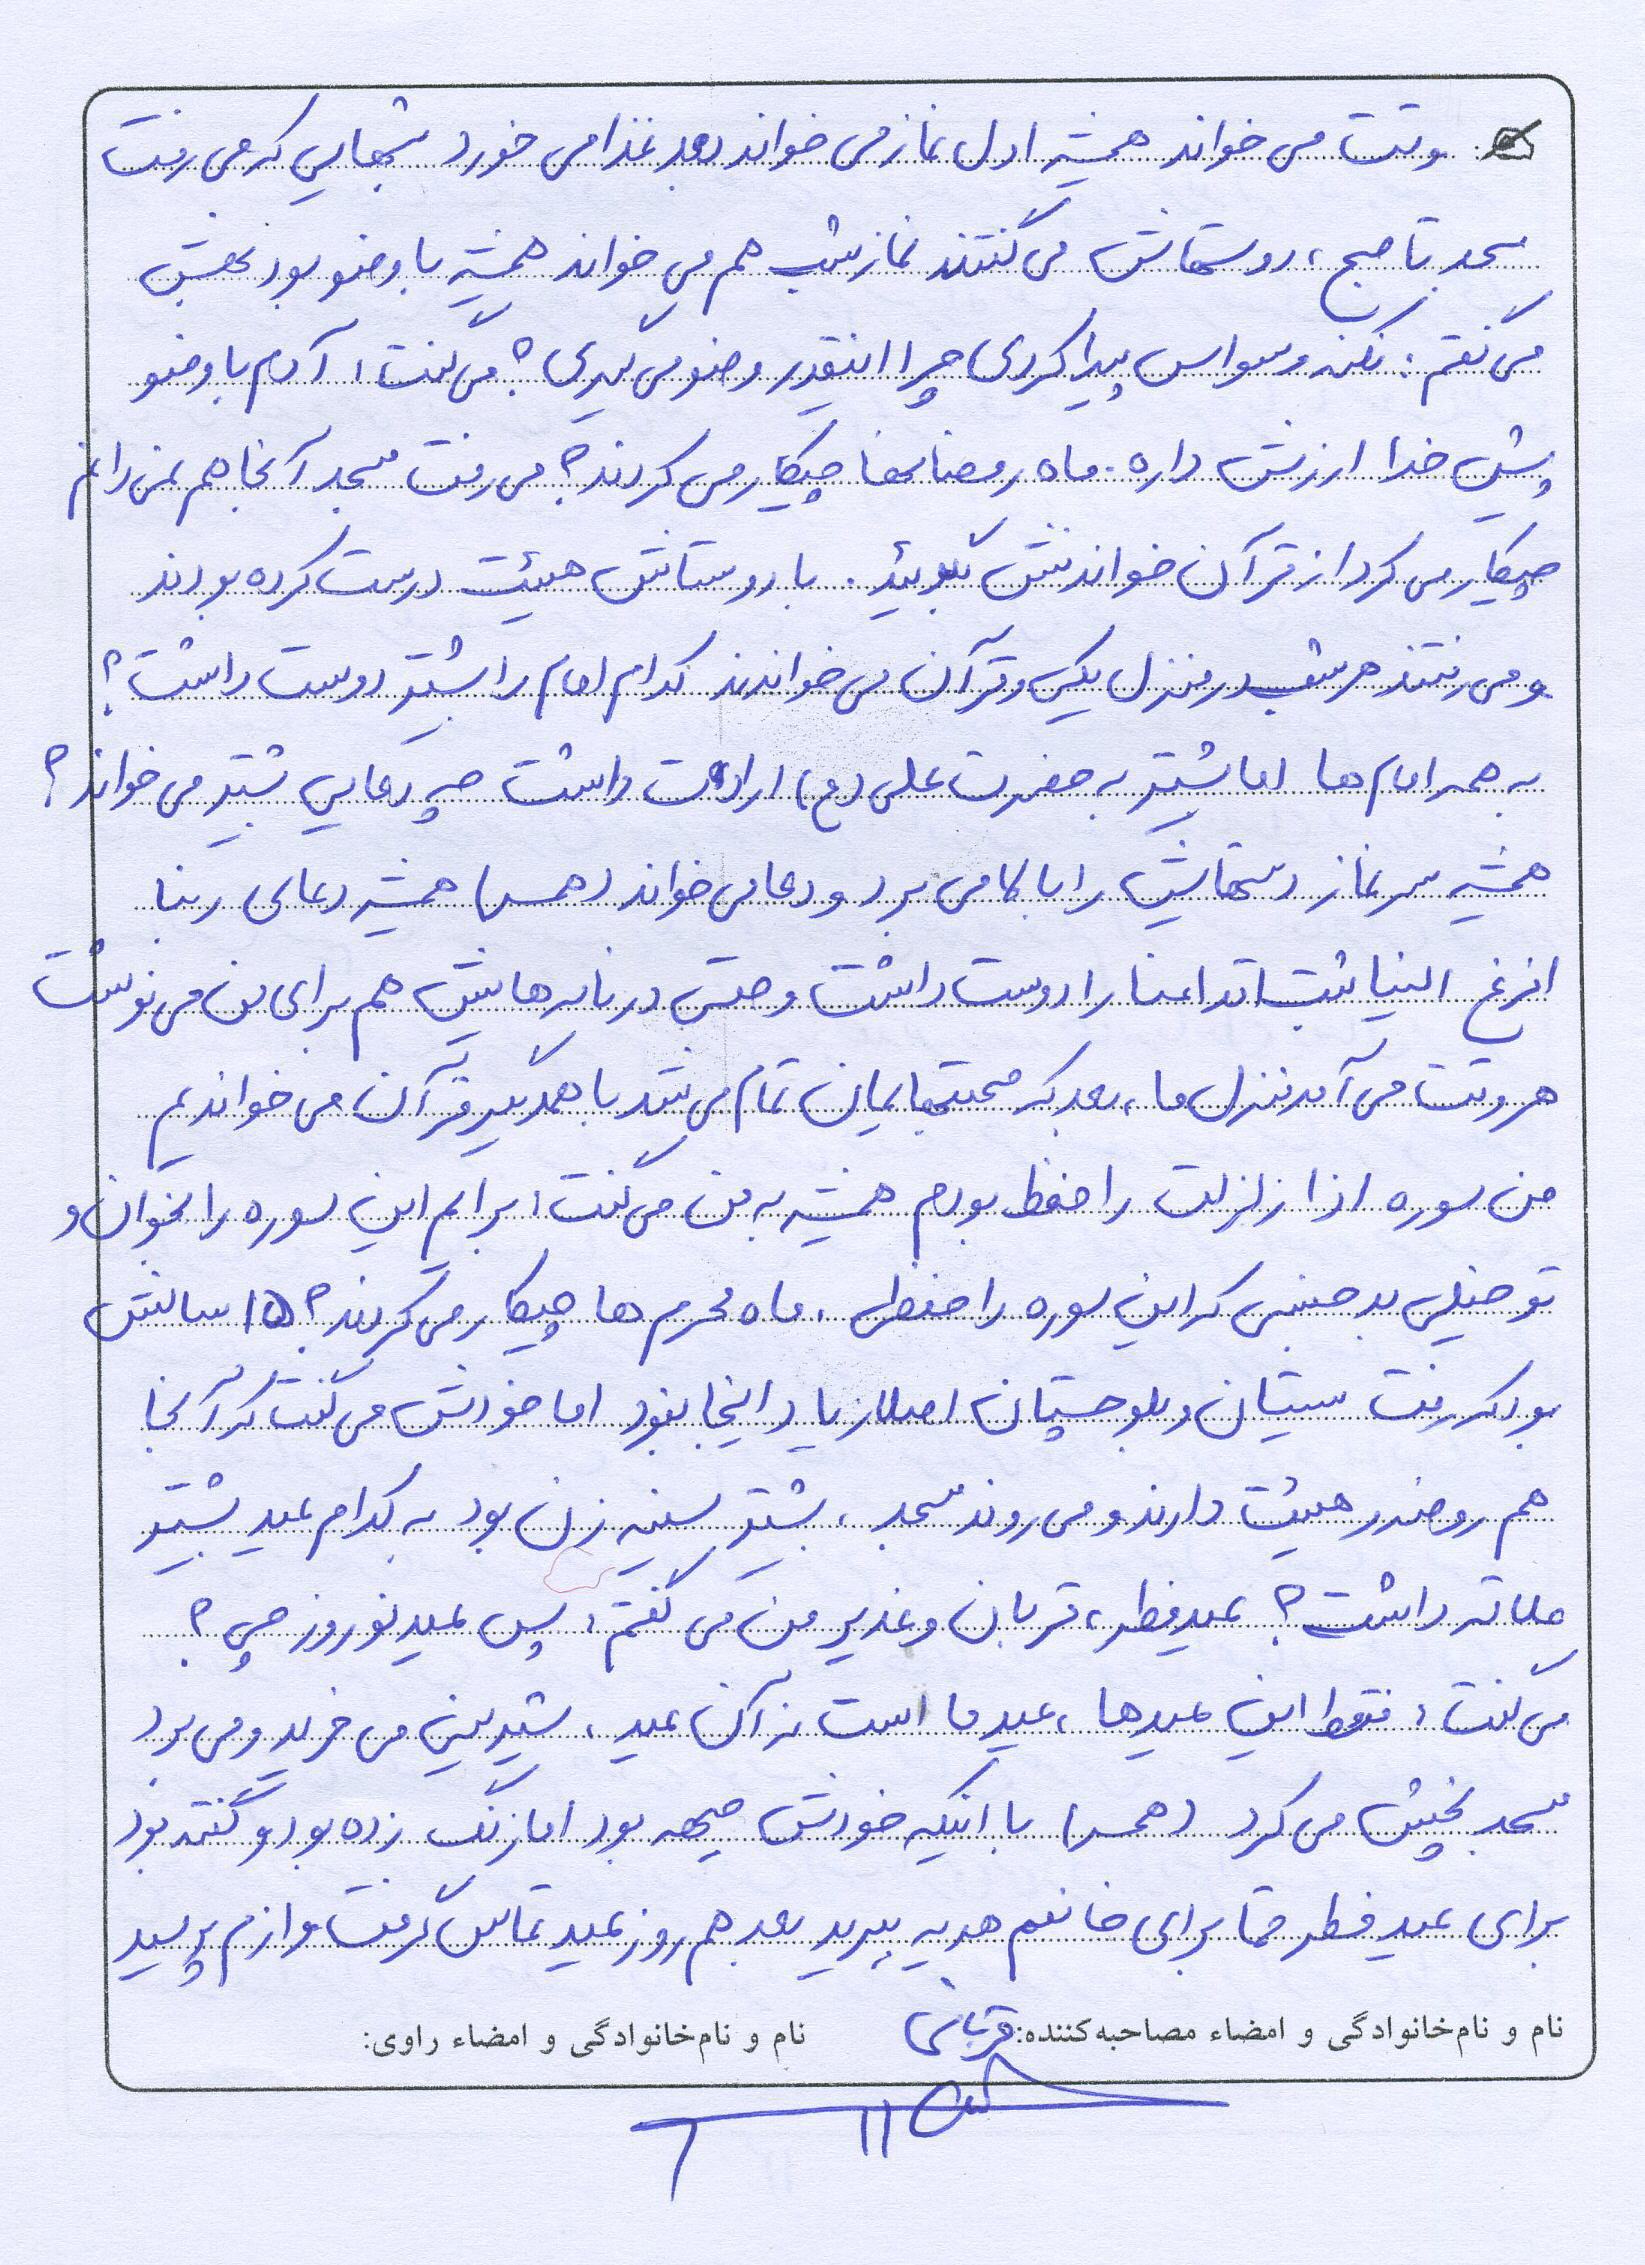 وقت می خواند همیشه اول نماز می خواند بعد غذا می خورد شبهایی که می رفت
مسجد تا صبح، دوستهاش می گفتند نماز شب هم می خواند همیشه با وضو بود بهش
می گفتم: نکنه وسواس پیدا کردی چرا اینقدر وضو می گیری؟ می گفت: آدم با وضو
پیش خدا ارزش داره. ماه رمضانها چیکار می کردند؟ می رفت مسجد آنجا هم نمی دانم
چیکار می کرد از قرآن خواندنش بگویید. با دوستانش هیئت درست کرده بودند
و می رفتند هر شب در منزل یکی و قرآن می خواندند کدام امام را بیشتر دوست داشت؟
به همه امام ها اما بیشتر به حضرت علی (ع) ارادت داشت چه دعایی بیشتر می خواند؟
همیشه سر نماز دستهایش را بالا می برد و دعا می خواند (همسر) همیشه دعای ربنا
افرغ الینا ثبت اقدامنا را دوست داشت و حتی در نامه هایش هم برای من می نوشت
هر وقت می آمد منزل ما، بعد که صحبتهایمان تمام می شد با همدیگر قرآن می خواندیم
من سوره اذا زلزلت را حفظ بودم همیشه به من می گفت: برایم این سوره را بخوان و
تو خیلی بدجنسی که این سوره را حفظی. ماه محرم ها چیکار می کردند؟ ۱۵ سالش
بود که رفت سیستان و بلوچستان اصلا زیاد اینجا نبود اما خودش می گفت که آنجا
هم روضه در هیئت دارند و می روند مسجد، بیشتر سینه زن بود به کدام عید بیشتر
علاقه داشت؟ عید فطر، قربان و غدیر من می گفتم: پس عید نوروز چی؟
می گفت: فقط این عیدها، عید ما است نه آن عید، شیرینی می خرید و می برد
مسجد بخش می کرد (همسر) با اینکه خودش جبهه بود اما زنگ زده بود و گفته بود
برای عید فطر حتما برای خانمم هدیه ببرید بعد هم روز عید تماس گرفت و ازم پرسید
نام و نام خانوادگی و امضاء مصاحبه کننده: قربانی
نام و نام خانوادگی و امضاء راوی: